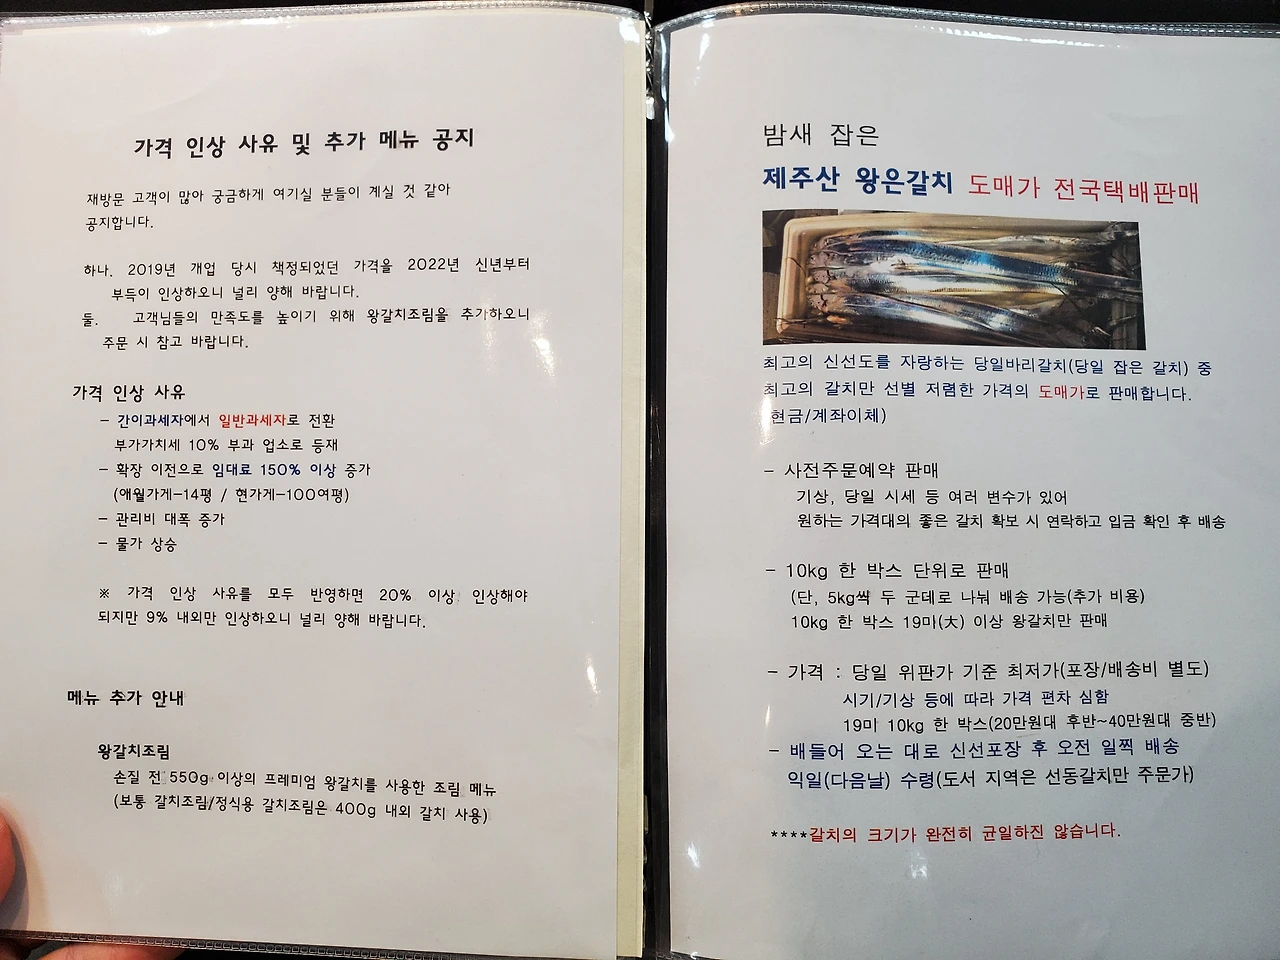 가격 인상 사유 및 추가 메뉴 공지
재방문 고객이 많아 궁금하게 여기실 분들이 계실 것 같아
공지합니다.
하나. 2019년 개업 당시 책정되었던 가격을 2022년 신년부터
부득이 인상하오니 널리 양해 바랍니다.
둘. 고객님들의 만족도를 높이기 위해 왕갈치조림을 추가하오니
주문 시 참고 바랍니다.
가격 인상 사유
- 간이과세자에서 일반과세자로 전환
부가가치세 10% 부과 업소로 등재
- 확장 이전으로 임대료 150% 이상 증가
(애월가게-14평 / 현가게-100여평)
- 관리비 대폭 증가
- 물가 상승
※ 가격 인상 사유를 모두 반영하면 20% 이상 인상해야
되지만 9% 내외만 인상하오니 널리 양해 바랍니다.
메뉴 추가 안내
왕갈치조림
손질 전 550g 이상의 프레미엄 왕갈치를 사용한 조림 메뉴
(보통 갈치조림/정식용 갈치조림은 400g 내외 갈치 사용)
밤새 잡은
제주산 왕은갈치 도매가 전국택배판매
최고의 신선도를 자랑하는 당일바리갈치(당일 잡은 갈치) 중
최고의 갈치만 선별 저렴한 가격의 도매가로 판매합니다.
현금/계좌이체)
- 사전주문예약 판매
기상, 당일 시세 등 여러 변수가 있어
원하는 가격대의 좋은 갈치 확보 시 연락하고 입금 확인 후 배송
- 10kg 한 박스 단위로 판매
(단, 5kg씩 두 군데로 나눠 배송 가능(추가 비용)
10kg 한 박스 19미(大) 이상 왕갈치만 판매
- 가격 : 당일 위판가 기준 최저가(포장/배송비 별도)
시기/기상 등에 따라 가격 편차 심함
19미 10kg 한 박스(20만원대 후반~40만원대 중반)
- 배들어 오는 대로 신선포장 후 오전 일찍 배송
익일(다음날) 수령(도서 지역은 선동갈치만 주문가)
****갈치의 크기가 완전히 균일하진 않습니다.